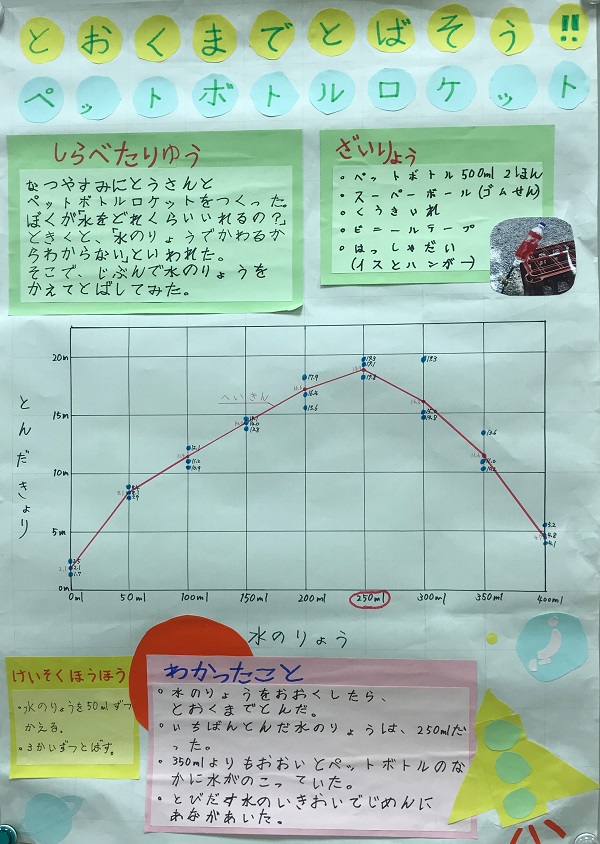 とおくまでとばそう!!
ペットボトルロケット
しらべたりゆう
なつやすみにとうさんと
ペットボトルロケットをつくった。
ぼくが「水をどれくらいいれるの?」
ときくと、「水のりょうでかわるか
らわからない」といわれた。
そこで、じぶんで水のりょうを
かえてとばしてみた。
ざいりょう
・ペットボトル500ml 2ほん
・スーパーボール(ゴムせん)
・くうきいれ
・ビニールテープ
・はっしゃだい
(イスとハンガー)
とんだきょり
20m
15m
10m
5m
0m
へいきん
2.1
1.7
8.3
12.1
11.0
10.4
14.0
13.8
17.9
16.4
15.6
19.3
19.1
18.8
15.0
14.8
13.6
11.0
5.2
4.8
4.1
0ml
50ml
100ml
150ml
200ml
250ml
300ml
350ml
400ml
水のりょう
けいそくほうほう
・水のりょうを50mlずつ
かえる。
・3かいずつとばす。
わかったこと
・水のりょうをおおくしたら、
とおくまでとんだ。
・いちばんとんだ水のりょうは、250mlだ
った。
・350mlよりもおおいとペットボトルのな
かに水がのこっていた。
・とびだす水のいきおいでじめんに
あながあいた。